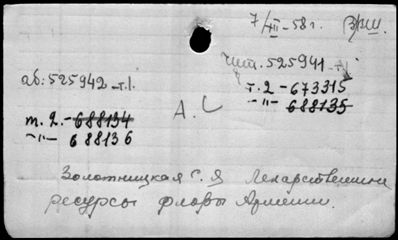 7/XII - 58 г. ВрШ.
чит. 525941 - т. I
аб: 525942 - т. I.
т. 2 - 673315
т. 2. - 688134
- " - 688135
- " - 688136
Золотницкая С. Я Лекарственные
ресурсы флоры Армении.